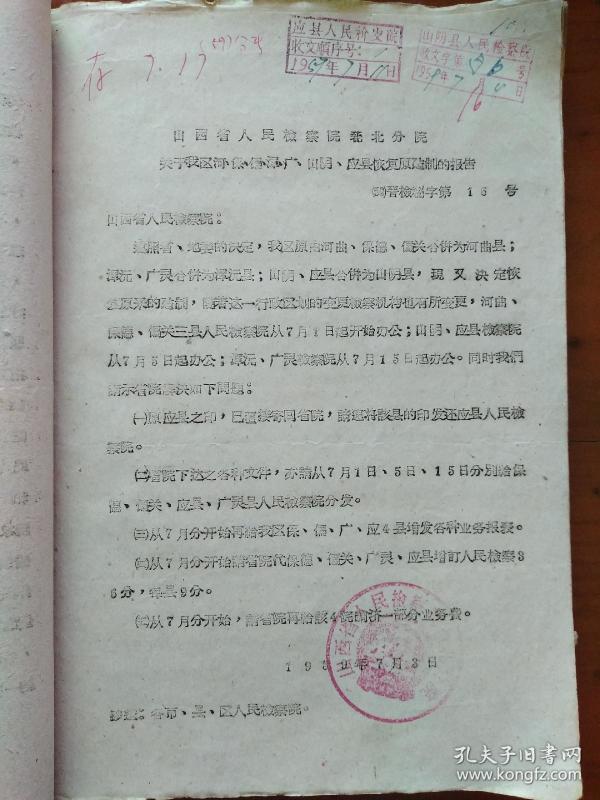 存 7.15
应县人民检察院
收文顺序号: 1
1959年7月11日
山阴县人民检察院
收文字第 号
195 年7月 日
山西省人民检察院晋北分院
关于我区河、保、偏、浑、广、山阴、应县恢复原建制的报告
晋检秘字第 16 号
山西省人民检察院:
遵照省、地委的决定,我区原由河曲、保德、偏关合併为河曲县;
浑沅、广灵合併为浑沅县;山阴、应县合併为山阴县,现又决定恢
复原来的建制,随着这一行政区划的变更检察机构也有所变更,河曲、
保德、偏关三县人民检察院从7月1日起开始办公;山阴、应县检察院
从7月5日起办公;浑沅、广灵检察院从7月15日起办公。同时我們
請示省院解决如下問題:
㈠原应县之印,已直接寄回省院,請迅将該县的印发还应县人民检
察院。
㈡省院下达之各种文件,亦請从7月1日、5日、15日分别給保
德、偏关、应县、广灵县人民检察院分发。
㈢从7月分开始再給我区保、偏、广、应4县增发各种业务报表。
从7月分开始請省院代保德、偏关、广灵、应县增訂人民检察3
6分,每县9分。
从7月分开始,請省院再給該4院 一部分业务費。
195 年7月3日
抄送:各市、县、区人民检察院。
山西省人民检
孔夫子旧书网
www.kongfz.com